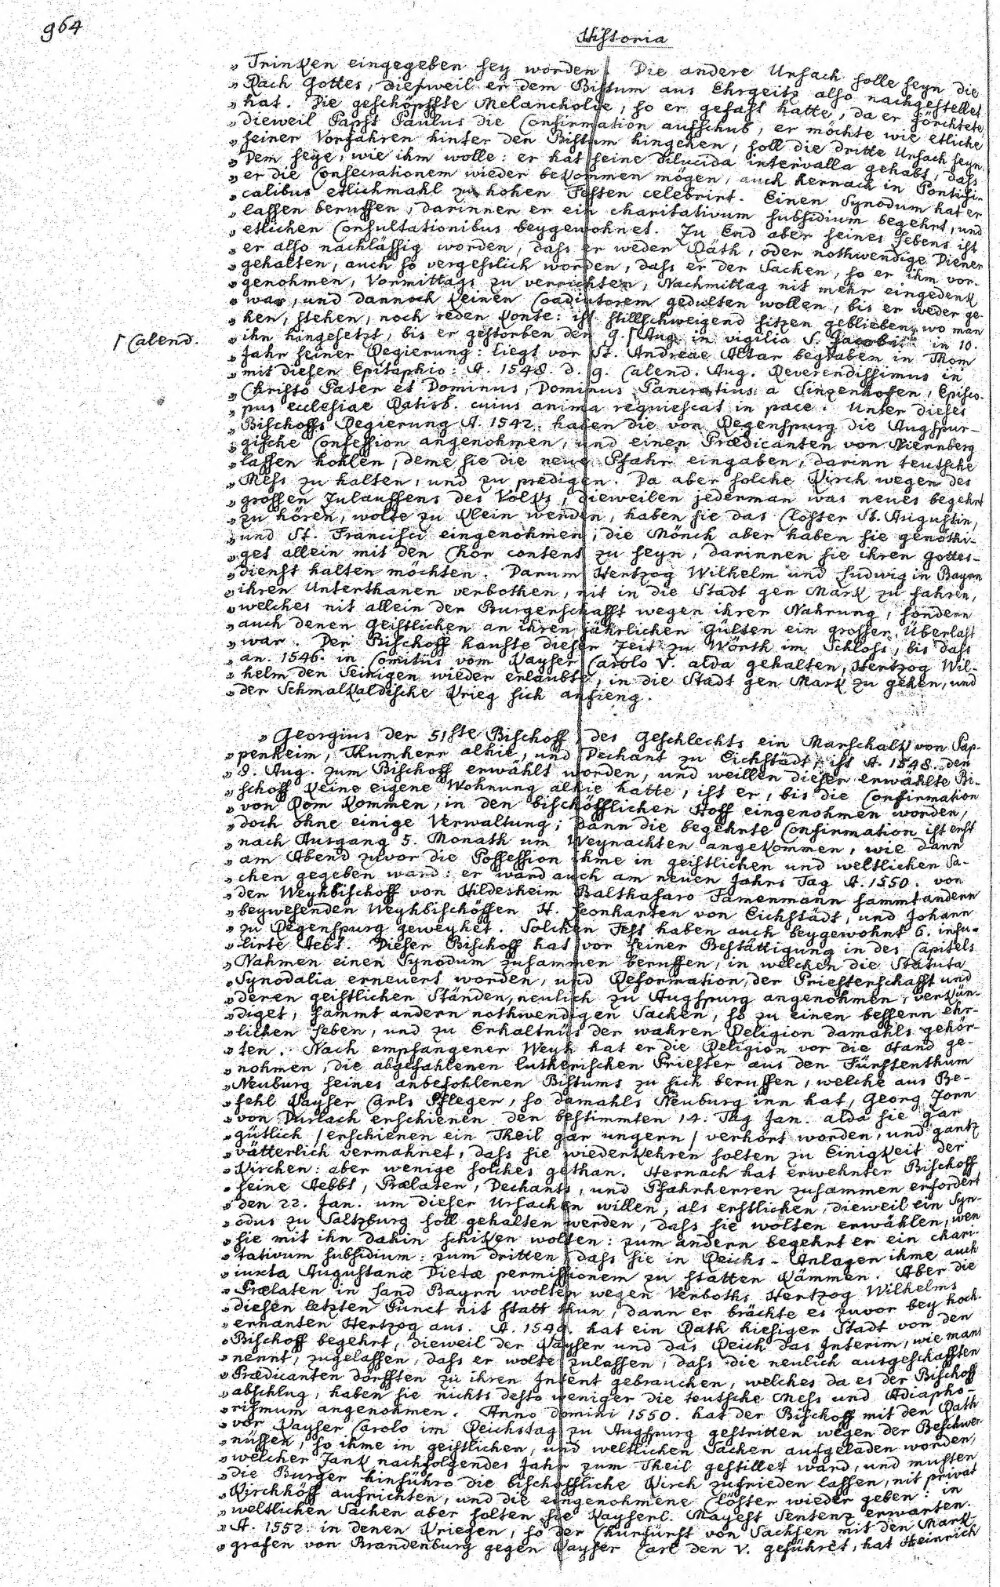 964
Historia
„ Trincken eingegeben sey worden. Die andere Ursach solle seyn die
„ Rach Gottes, dieweil er dem Bistum aus Ehrgeitz also nachgestellet
„ hat. Die geschöpffte Melancholie, so er gefast hatte, da er förchtete
„ dieweil Papst Paulus die Confirmation aufschub, er möchte wie etliche
„ seiner Vorfahren hinter den Bistum hingehen, soll die dritte Ursach seyn
„ Dem seye, wie ihm wolle: er hat seine dilucida intervalla gehabt, dass
„ er die Consecrationem wieder bekommen mögen, auch hernach in Pontifi-
„ calibus etlichmahl zu hohen Festen celebrirt. Einen Synodum hat er
„ lassen beruffen, darinnen er ein charitativum subsidium begehrt, und
„ etlichen Consultationibus beygewohnet. Zu End aber seines Lebens ist
„ er also nachlässig worden, dass er weder Räth, oder nothwendige Diener
„ gehalten, auch so vergesslich worden, dass er der Sachen, so er ihm vor-
„ genohmen, Vormittags zu verrichten, Nachmittag nit mehr eingedenk
„ war, und dannoch keinen Coadiutorem gedulten wollen, bis er weder ge-
„ hen, stehen, noch reden konte: ist stillschweigend sitzen geblieben, wo man
„ ihn hingesetzt, bis er gestorben den 9. Aug. in vigilia S. Jacobi in 10.
Calend.
„ Jahr seiner Regierung: liegt vor St. Andreae Altar begraben in Thom
„ mit diesen Epitaphio: A. 1548. d. 9. Calend. Aug. Reverendissimus in
„ Christo Pater et Dominus, Dominus Pancratius a Sinzenhofen, Episco-
„ pus ecclesiae Ratisb. cuius anima requiescat in pace. Unter dieses
„ Bischoffs Regierung A. 1542. haben die von Regenspurg die Augspur-
„ gische Confession angenohmen, und einen Prædicanten von Niernberg
„ lassen hohlen, deme sie die neue Pfahr eingaben, darinn teutsche
„ Mess zu halten, und zu predigen. Da aber solche Kirch wegen des
„ grossen Zulauffens des Volks, dieweilen jederman was neues begehrt
„ zu hören, wolte zu klein werden, haben sie das Closter St. Augustin,
„ und St. Francisci eingenohmen, die Mönch aber haben sie genöthi-
„ get allein mit den Chor content zu seyn, darinnen sie ihren Gottes-
„ dienst halten möchten. Darum Hertzog Wilhelm und Ludwig in Bayrn
„ ihren Unterthanen verbothen, nit in die Stadt gen Mark zu fahren,
„ welches nit allein der Burgerschafft wegen ihrer Nahrung, sondern
„ auch denen Geistlichen an ihren jährlichen Gülten ein grosser Überlast
„ war. Der Bischoff hauste dieser Zeit zu Wörth im Schloss, bis dass
„ an. 1546. in Comitiis vom Kayser Carolo V. alda gehalten, Hertzog Wil-
„ helm den Seinigen wieder erlaubte, in die Stadt gen Mark zu gehen, und
„ der Schmalkaldische Krieg sich anfieng.
„ Georgius der 51ste Bischoff des Geschlechts ein Marschalk von Pap-
„ penheim, Thumherr alhie, und Dechant zu Eichstädt, ist A. 1548. den
„ 8. Aug. zum Bischoff erwählt worden, und weillen dieser erwählte Bi-
„ schoff keine eigene Wohnung alhie hatte, ist er, bis die Confirmation
„ von Rom kommen, in den bischöfflichen Hoff eingenohmen worden,
„ doch ohne einige Verwaltung; dann die begehrte Confirmation ist erst
„ nach Ausgang 5. Monath um Weynachten angekommen, wie dann
„ am Abend zuvor die Possession ihme in geistlichen und weltlichen Sa-
„ chen gegeben ward: er ward auch am neuen Jahrs Tag A. 1550. von
„ den Weyhbischoff von Hildesheim Balthasaro Fanenmann sammt andern
„ beywesenden Weyhbischöffen H. Leonharten von Eichstädt, und Johann
„ zu Regenspurg geweyhet. Solchen Fest haben auch beygewohnt 6. infu-
„ lirte Aebt. Dieser Bischoff hat vor seiner Bestättigung in des Capitels
„ Nahmen einen Synodum zusammen beruffen, in welchen die Statuta
„ Synodalia erneuert worden, und Reformation, der Priesterschafft und
„ deren geistlichen Ständen, neulich zu Augspurg angenohmen, verkün-
„ diget, sammt andern nothwendigen Sachen, so zu einen bessern ehr-
„ lichen Leben, und zu Erhaltnüs der wahren Religion damahls gehör-
„ ten. Nach empfangener Weyh hat er die Religion vor die Hand ge-
„ nohmen, die abgefahlenen lutherischen Priester aus den Fürstenthum
„ Neuburg seines anbefohlenen Bistums zu sich beruffen, welche aus Be-
„ fehl Kayser Carls Pfleger, so damahls Neuburg inn hat, Georg Zorn
„ von Durlach erschienen den bestimmten 14. Tag Jan. alda sie gar
„ gütlich / erschienen ein Theil gar ungern / verhört worden, und gantz
„ vätterlich vermahnet, dass sie wiederkehren solten zu Einigkeit der
„ Kirchen: aber wenige solches gethan. Hernach hat erwehnter Bischoff
„ seine Aebbt, Prælaten, Dechants, und Pfahrherren zusammen erfordert
„ den 22. Jan. um dieser Ursachen willen, als erstlichen, dieweil ein Syn-
„ odus zu Saltzburg soll gehalten werden, dass sie wolten erwählen, wen
„ sie mit ihn dahin schiken wolten: zum andern begehrt er ein chari-
„ tativum subsidium: zum dritten, dass sie in Reichs-Anlagen ihme auch
„ iuxta Augustanæ Dietæ permissionem zu statten kämmen. Aber die
„ Prælaten in Land Bayrn wolten wegen Verboths Hertzog Wilhelms
„ diesen letzten Punct nit statt thun, dann er brächte es zuvor bey hoch-
„ ernanten Hertzog aus. A. 1549. hat ein Rath hiesiger Stadt von den
„ Bischoff begehrt, dieweil der Kayser und das Reich das Interim, wie mans
„ nennt, zugelassen, dass er wolte zulassen, dass die neulich ausgeschafften
„ Prædicanten dörfften zu ihren Intent gebrauchen, welches da es der Bischoff
„ abschlug, haben sie nichts desto weniger die teutsche Mess und Adiapho-
„ rismum angenohmen. Anno domini 1550. hat der Bischoff mit den Rath
„ vor Kayser Carolo im Reichstag zu Augspurg gestritten wegen der Beschwer
„ nüssen, so ihme in geistlichen, und weltlichen Sachen aufgeladen worden,
„ welcher Zank nachfolgendes Jahr zum Theil gestillet ward, und musten
„ die Burger hinführo die bischöffliche Kirch zufrieden lassen, nit privat
„ Kirchhöff aufrichten, und die eingenohmene Clöster wieder geben: in
„ weltlichen Sachen aber solten sie Kayserl. Mayest Sentenz erwarten.
„ A. 1552. in denen Kriegen, so der Churfürst von Sachsen mit den Mark-
„ grafen von Brandenburg gegen Kayser Carl den V. geführet, hat Heinrich